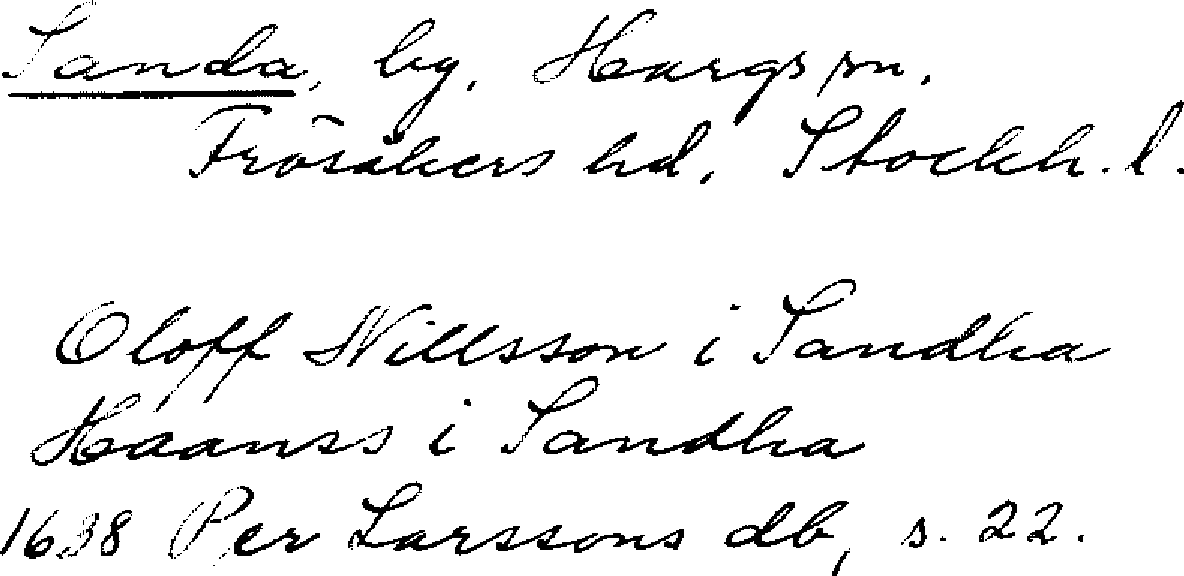 Sanda, by, Hargs sn.
Frösåkers hd, Stockh. l.
Oloff Nillsson i Sandha
Haanss i Sandha
1638 Per Larssons db, s. 22.